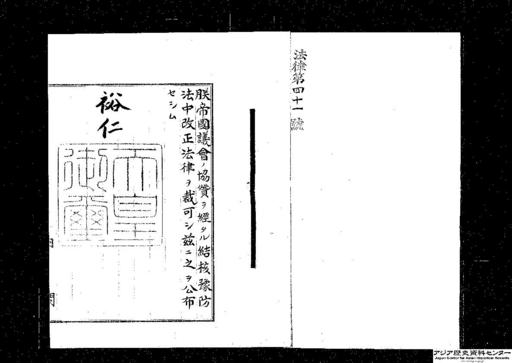 法律第四十一號
朕帝國議會ノ協贊ヲ經タル結核豫防
法中改正法律ヲ裁可シ茲ニ之ヲ公布
セシム
裕仁
天皇御璽
内閣
アジア歴史資料センター
Japan Center for Asian Historical Records